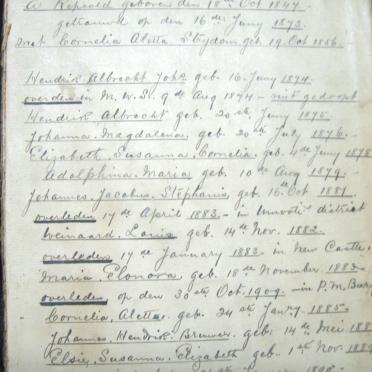 A Repsold geboren den 18de Oct 1847.
getrouwd op den 16de Juny 1873.
met Cornelia Aletta Strydom geb. 19. Oct 1856.
Hendrik Albrecht Johs. geb. 16. Juny 1874.
overleden in M.W.S. 9de Aug 1874 - niet gedoopt
Hendrik Albrecht geb. 20ste Juny 1875.
Johanna. Magdalena. geb. 20ste July 1876.
Elizabeth. Susanna. Cornelia. geb. 4de Juny 1878
Adolphina Maria geb. 10de Aug 1879.
Johannes. Jacobus. Stephanis, geb. 16.de Oct 1881.
overleden 17de April 1883 - in Umvoti district
Weinaard. Louis geb. 14de Nov. 1882.
overleden 17de January 1883 in New Castle.
Maria. Elonora. geb. 18de November 1883.
overleden op den 30ste Oct. 1909 - in P.M. Burg
Cornelia, Aletta. geb. 24ste Jany. 1885.
Johannes. Hendrik. Bruwer. geb. 14de Mei 188
Elsie, Susanna. Elizabeth geb. 1ste Nov. 188